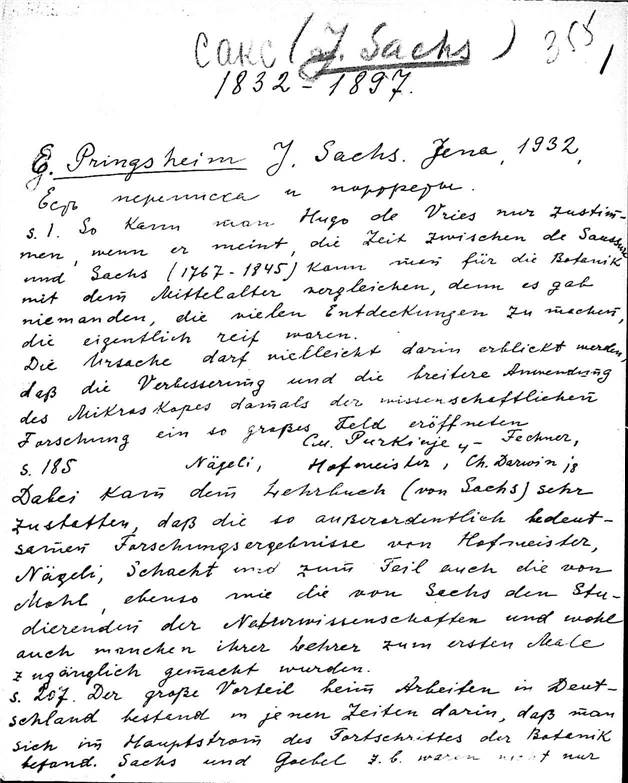 Сакс (J. Sachs) 355
1832 - 1897.
E. Pringsheim J. Sachs. Jena, 1932,
Есть переписка и портреты.
s. 1. So kann man Hugo de Vries nur zustim-
men, wenn er meint, die Zeit zwischen de Saussure
und Sachs (1767-1845) kann man für die Botanik
mit dem Mittelalter vergleichen, denn es gab
niemanden, die vielen Entdeckungen zu machen,
die eigentlich reif waren.
Die Ursache darf vielleicht darin erblickt werden,
daß die Verbesserung und die breitere Anwendung
des Mikroskopes damals der wissenschaftlichen
Forschung ein so großes Feld eröffneten
См. Purkinje у Fechner,
s. 185 Nägeli, Hofmeister, Ch. Darwin
Dabei kam dem Lehrbuch (von Sachs) sehr
zustatten, daß die so außerordentlich bedeut-
samen Forschungsergebnisse von Hofmeister,
Nägeli, Schacht und zum Teil auch die von
Mohl, ebenso wie die von Sachs den Stu-
dierenden der Naturwissenschaften und wohl
auch manchen ihrer Lehrer zum ersten Male
zugänglich gemacht wurden.
s. 207. Der große Vorteil beim Arbeiten in Deut-
schland bestand in jenen Zeiten darin, daß man
sich im Hauptstrom des Fortschrittes der Botanik
befand. Sachs und Goebel z. b. waren nicht nur